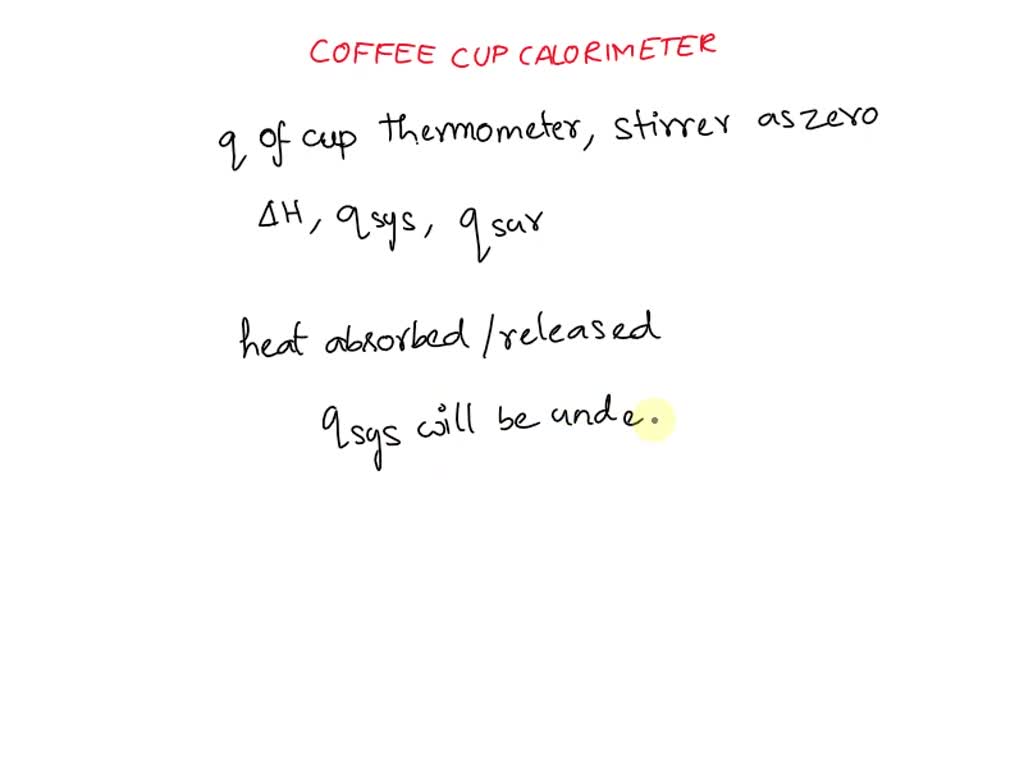 COFFEE CUP CALORIMETER
q of cup thermometer, stirrer as zero
ΔH, qsys, qsur
heat absorbed/released
qsys will be unde.